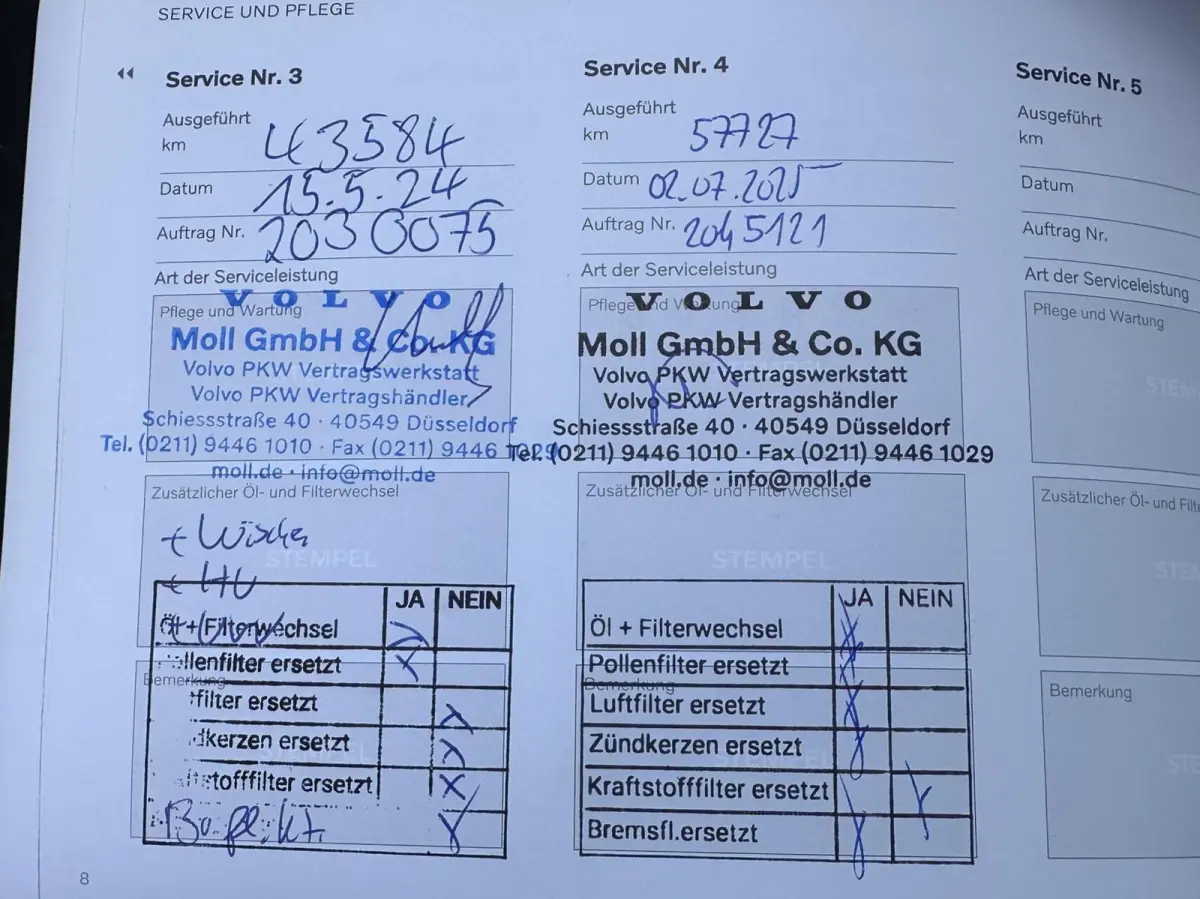 SERVICE UND PFLEGE
Service Nr. 3
Ausgeführt
km 43584
Datum 15.5.24
Auftrag Nr. 2030075
Art der Serviceleistung
Pflege und Wartung
VOLVO
Moll GmbH & Co. KG
Volvo PKW Vertragswerkstatt
Volvo PKW Vertragshändler
Schiessstraße 40 · 40549 Düsseldorf
Tel. (0211) 9446 1010 · Fax (0211) 9446 1029
moll.de · info@moll.de
Zusätzlicher Öl- und Filterwechsel
+ Wischer
STEMPEL
+ HU
JA NEIN
Öl + Filterwechsel
ollenfilter ersetzt
Bemerkung
filter ersetzt
dkerzen ersetzt
stofffilter ersetzt
8
Service Nr. 4
Ausgeführt
km 57727
Datum 02.07.2025
Auftrag Nr. 2045121
Art der Serviceleistung
Pflege und Wartung
VOLVO
Moll GmbH & Co. KG
Volvo PKW Vertragswerkstatt
Volvo PKW Vertragshändler
Schiessstraße 40 · 40549 Düsseldorf
Tel. (0211) 9446 1010 · Fax (0211) 9446 1029
moll.de · info@moll.de
Zusätzlicher Öl- und Filterwechsel
STEMPEL
JA NEIN
Öl + Filterwechsel
Pollenfilter ersetzt
Bemerkung
Luftfilter ersetzt
Zündkerzen ersetzt
STEMPEL
Kraftstofffilter ersetzt
Bremsfl.ersetzt
Service Nr. 5
Ausgeführt
km
Datum
Auftrag Nr.
Art der Serviceleistung
Pflege und Wartung
STEM
Zusätzlicher Öl- und Filte
STE
Bemerkung
STE